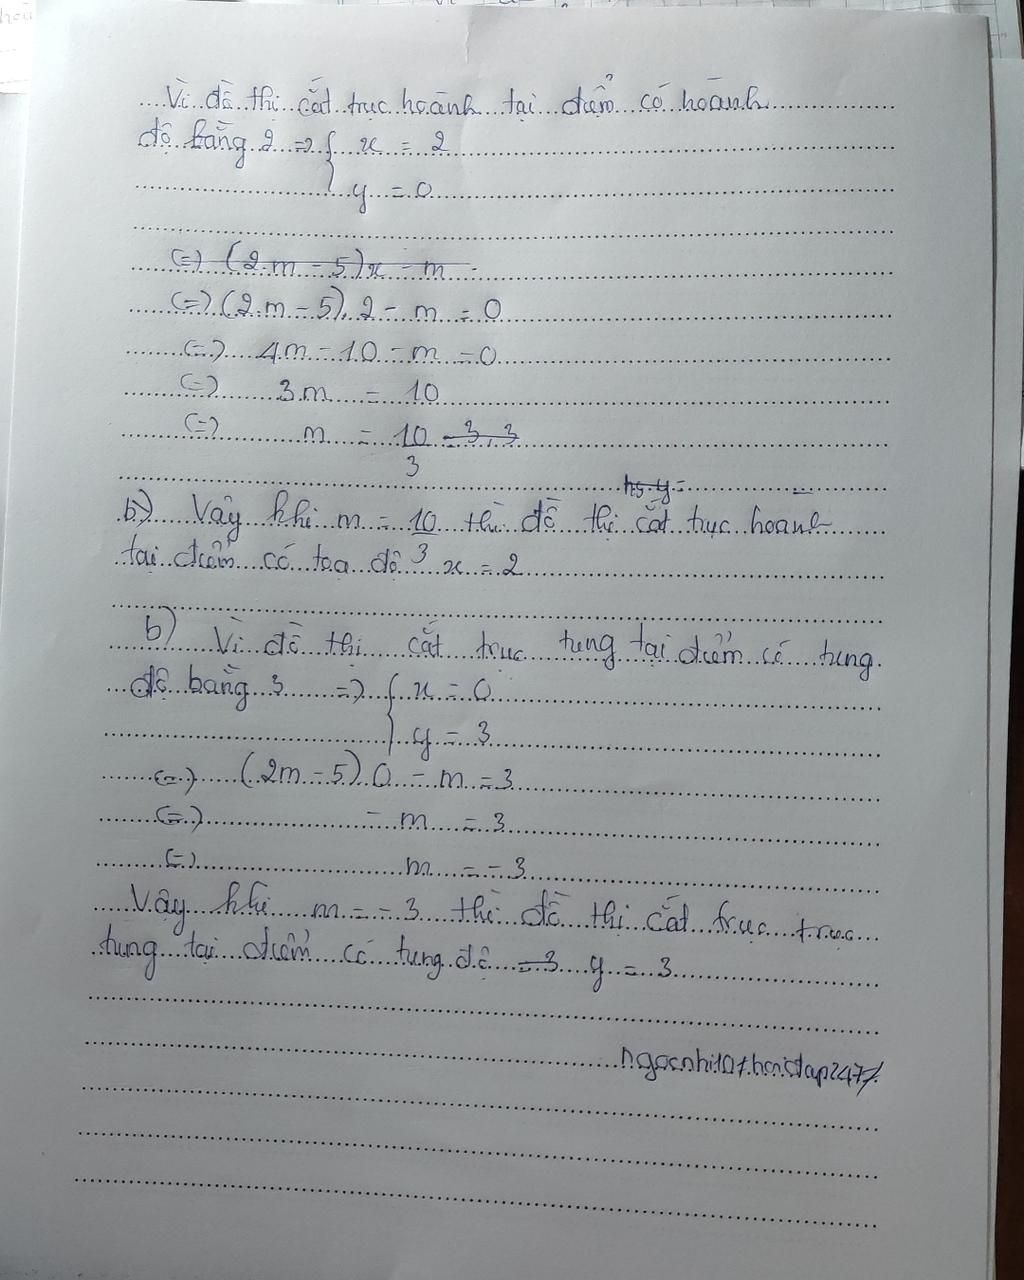 Vì đồ thị cắt trục hoành tại điểm có hoành
độ bằng 2 => { x = 2
y = 0
(=) (2m - 5)x - m
(=) (2m - 5). 2 - m = 0
(=) 4m - 10 - m = 0
(=) 3m = 10
(=) m = 10/3 = 3,3
hs y =
b) Vậy khi m = 10/3 thì đồ thị cắt trục hoành
tại điểm có tọa độ x = 2
b) Vì đồ thị cắt trục tung tại điểm có tung
độ bằng 3 => { x = 0
y = 3
(=) (2m - 5). 0 - m = 3
(=) - m = 3
(=) m = - 3
Vậy khi m = - 3 thì đồ thị cắt trục trục
tung tại điểm có tung độ = 3 y = 3
ngocnhi107.hoidap247/